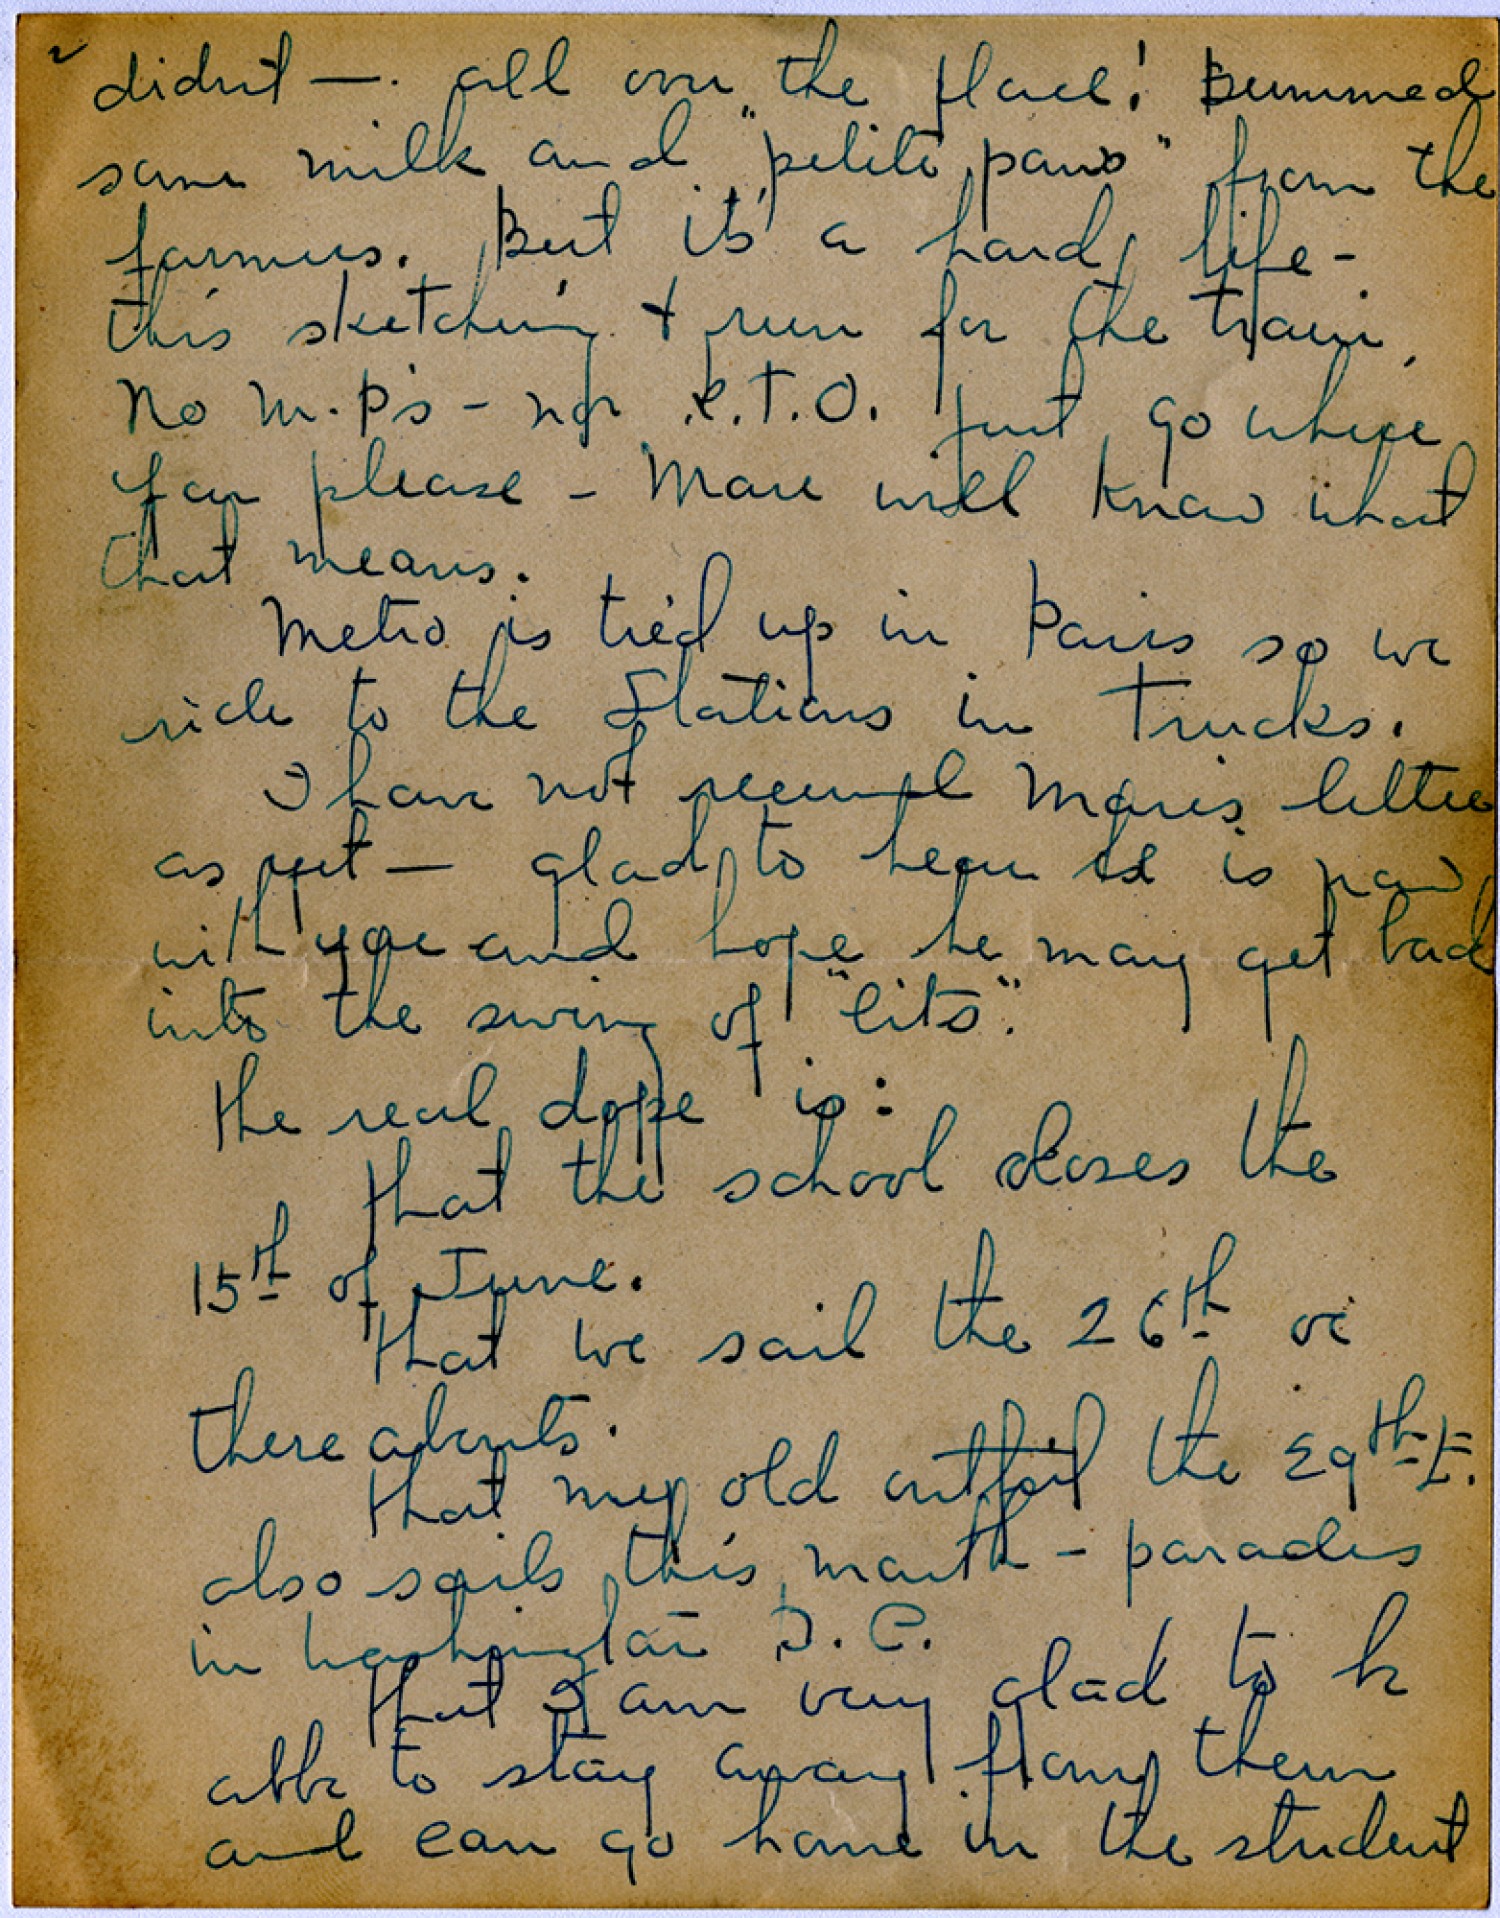 2
didn't —. all over the place! Bummed
some milk and "petite pans" from the
farmers. But it's a hard life -
this sketching & run for the train.
No M.P's - nor R.T.O. Just go where
you please - Marc will know what
that means.
Metro is tied up in Paris so we
ride to the Stations in Trucks.
I have not received Marc's letter
as yet — glad to hear he is now
with you and hope he may get back
into the swing of "lits".
The real dope is:
That the school closes the
15th of June.
That we sail the 26th or
there abouts.
That my old outfit the 29th E.
also sails this month - parades
in Washington D.C.
That I am very glad to be
able to stay away from them
and can go home in the student